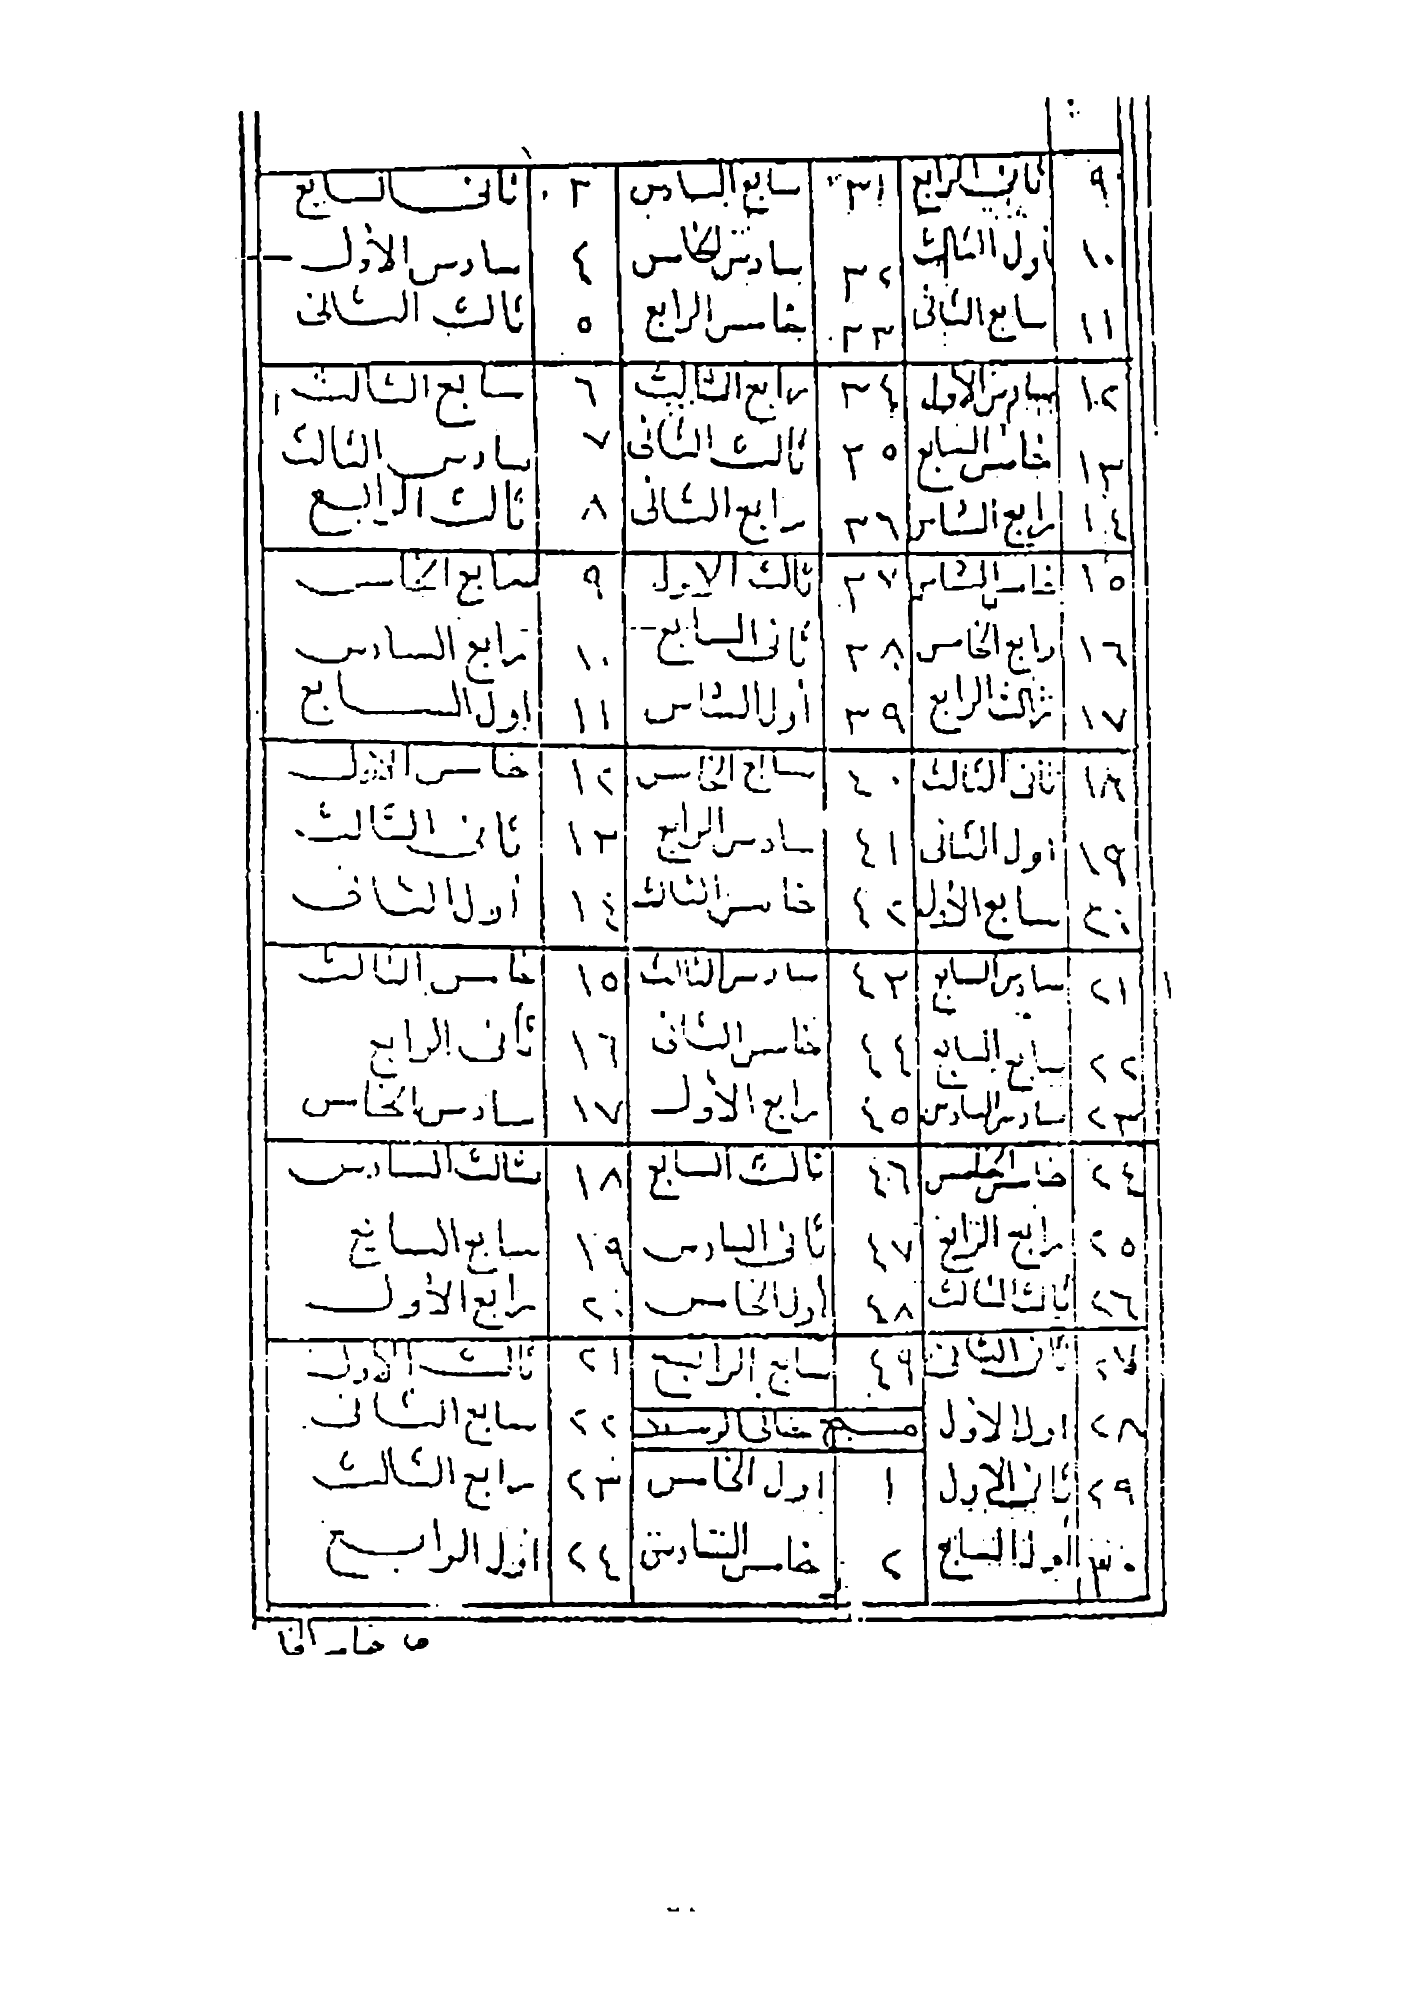 ٩ ثانى الرابع ٣١ سابع السادس ٣ ثانى السابع
١٠ أول الثالث ٣٢ سادس الخامس ٤ سادس الأول
١١ سابع الثانى ٣٣ خامس الرابع ٥ ثالث الثانى
١٢ سادس الأول ٣٤ رابع الثالث ٦ سابع الثالث
١٣ خامس السابع ٣٥ ثالث الثانى ٧ سادس الثالث
١٤ رابع السادس ٣٦ رابع الثانى ٨ ثالث الرابع
١٥ خامس السادس ٣٧ ثالث الاول ٩ سابع الخامس
١٦ رابع الخامس ٣٨ ثانى السابع ١٠ رابع السادس
١٧ ثالث الرابع ٣٩ أول السادس ١١ اول السابع
١٨ ثانى الثالث ٤٠ سابع الخامس ١٢ خامس الأول
١٩ اول الثانى ٤١ سادس الرابع ١٣ ثانى الثالث
٢٠ سابع الأول ٤٢ خامس الثالث ١٤ أول الثانى
٢١ سادس السابع ٤٣ سادس الثالث ١٥ خامس الثالث
٢٢ سابع السابع ٤٤ خامس الثانى ١٦ ثانى الرابع
٢٣ سادس السادس ٤٥ رابع الأول ١٧ سادس الخامس
٢٤ خامس الخامس ٤٦ ثالث السابع ١٨ ثالث السادس
٢٥ رابع الرابع ٤٧ ثانى السادس ١٩ سابع السابع
٢٦ ثالث الثالث ٤٨ أول الخامس ٢٠ رابع الأول
٢٧ ثانى الثانى ٤٩ سابع الرابع ٢١ ثالث الأول
٢٨ اول الاول ٢٢ سابع الثانى
٢٩ ثانى الاول ١ اول الخامس ٢٣ رابع الثالث
٣٠ أول السابع ٢ خامس السادس ٢٤ اول الرابع